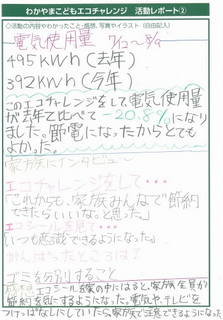 わかやまこどもエコチャレンジ 活動レポート②
◇活動の内容やわかったこと・感想、写真やイラスト(自由記入)
電気使用量 7/12〜8/9
495kWh(去年)
392kWh(今年)
このエコチャレンジをして電気使用量
が去年と比べて-20.8%になり
ました。節電になったからとても
よかった。
家族にインタビュー
エコチャレンジをして…
「これからも、家族みんなで節約
できたらいいなと思った。」
エコシールを見て…
「いつも意識できるようになった。」
がんばったところは?
ゴミを分別すること
エコシールを家の中にはると、家族全員が
節約を気にするようになった。電気や、テレビを
つけっぱなしにしていたら、家族で注意できるようになった。